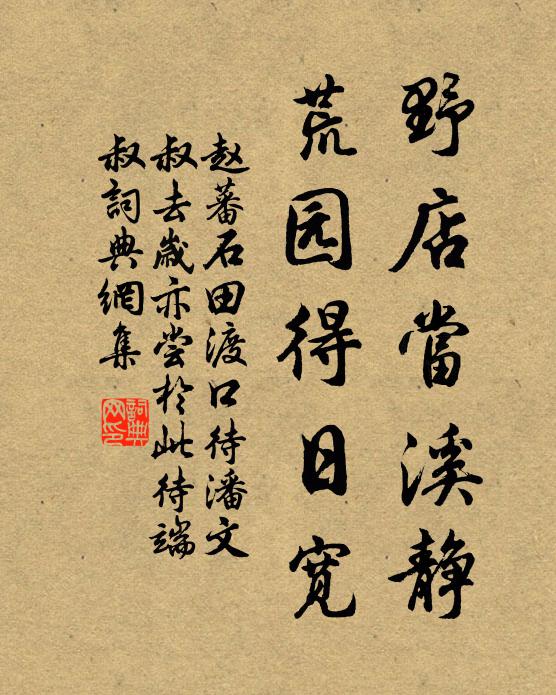 野店當溪静
荒园得日寬
赵蕃石田渡口待潘文
叔去歲亦嘗於此待端
叔詞典網集
詞典
网印